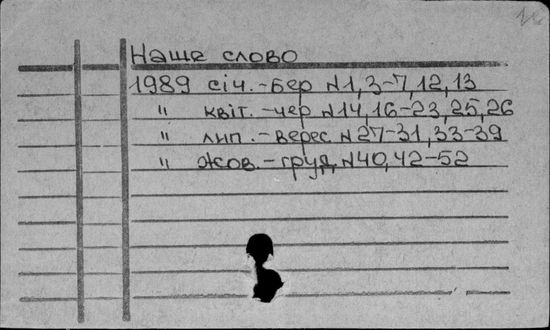 Наше слово
1989 січ.-Бер N1,3-7,12,13
" квіт.-чер N14,16-23,25,26
" лип.-верес N27-31,33-39
" жов.-груд, N40,42-52